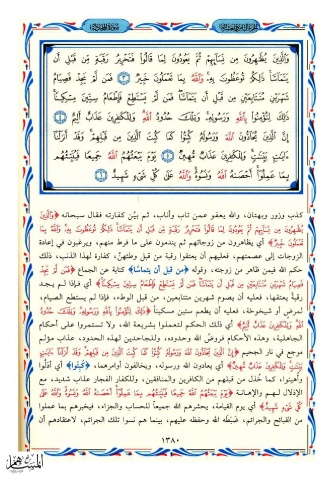 وَٱلَّذِينَ يُظَٰهِرُونَ مِن نِّسَآئِهِمْ ثُمَّ يَعُودُونَ لِمَا قَالُوا۟ فَتَحْرِيرُ رَقَبَةٍ مِّن قَبْلِ أَن
يَتَمَآسَّا ذَٰلِكُمْ تُوعَظُونَ بِهِۦ وَٱللَّهُ بِمَا تَعْمَلُونَ خَبِيرٌ ٣ فَمَن لَّمْ يَجِدْ فَصِيَامُ
شَهْرَيْنِ مُتَتَابِعَيْنِ مِن قَبْلِ أَن يَتَمَآسَّا فَمَن لَّمْ يَسْتَطِعْ فَإِطْعَامُ سِتِّينَ مِسْكِينًا
ذَٰلِكَ لِتُؤْمِنُوا۟ بِٱللَّهِ وَرَسُولِهِۦ وَتِلْكَ حُدُودُ ٱللَّهِ وَلِلْكَٰفِرِينَ عَذَابٌ أَلِيمٌ ٤
إِنَّ ٱلَّذِينَ يُحَآدُّونَ ٱللَّهَ وَرَسُولَهُۥ كُبِتُوا۟ كَمَا كُبِتَ ٱلَّذِينَ مِن قَبْلِهِمْ وَقَدْ أَنزَلْنَآ
ءَايَٰتٍۭ بَيِّنَٰتٍ وَلِلْكَٰفِرِينَ عَذَابٌ مُّهِينٌ ٥ يَوْمَ يَبْعَثُهُمُ ٱللَّهُ جَمِيعًا فَيُنَبِّئُهُم
بِمَا عَمِلُوٓا۟ أَحْصَىٰهُ ٱللَّهُ وَنَسُوهُ وَٱللَّهُ عَلَىٰ كُلِّ شَىْءٍ شَهِيدٌ ٦
كذب وزور وبهتان، والله يعفو عمن تاب وأناب، ثم بيّن كفارته فقال سبحانه ﴿والذين
يظاهرون من نسائهم ثم يعودون لما قالوا فتحرير رقبة من قبل أن يتماسا ذلكم توعظون به والله بما
تعملون خبير﴾ أي يظاهرون من زوجاتهم ثم يندمون على ما فرط منهم، ويرغبون في إعادة
الزوجات إلى عصمتهم، فعليهم أن يعتقوا رقبة من قبل وطئهنّ، كفارة لهذا الذنب، ذلك
حكم الله فيمن ظاهر من زوجته، وقوله ﴿من قبل أن يتماسا﴾ كناية عن الجماع ﴿فمن لم يجد
فصيام شهرين متتابعين من قبل أن يتماسا فمن لم يستطع فإطعام ستين مسكينا﴾ أي فإذا لم يجد
رقبة يعتقها، فعليه أن يصوم شهرين متتابعين، من قبل الوطء، فإذا لم يستطع الصيام،
لمرض أو شيخوخة، فعليه أن يطعم ستين مسكيناً ﴿ذلك لتؤمنوا بالله ورسوله وتلك حدود
الله وللكافرين عذاب أليم﴾ أي ذلك الحكم لتعملوا بشريعة الله، ولا تستمروا على أحكام
الجاهلية، وهذه الأحكام فروض الله وحدوده، وللجاحدين لهذه الحدود، عذاب مؤلم
موجع في نار الجحيم ﴿إن الذين يحادون الله ورسوله كبتوا كما كبت الذين من قبلهم وقد أنزلنا آيات
بينات وللكافرين عذاب مهين﴾ أي يعادون الله ورسوله، ويخالفون أوامرهما، ﴿كبتوا﴾ أي أذلّوا
وأهينوا، كما خُذل من قبلهم من الكافرين والمنافقين، وللكفار الفجار عذاب شديد، مع
الإذلال لهم والإهانة ﴿يوم يبعثهم الله جميعا فينبئهم بما عملوا أحصاه الله ونسوه والله على
كل شيء شهيد﴾ أي يوم القيامة، يحشرهم الله جميعاً للحساب والجزاء، فيخبرهم بما عملوا
من القبائح والجرائم، ضبطه الله وحفظه عليهم، بينما هم نسوا تلك الجرائم، لاعتقادهم أن
١٣٨٠